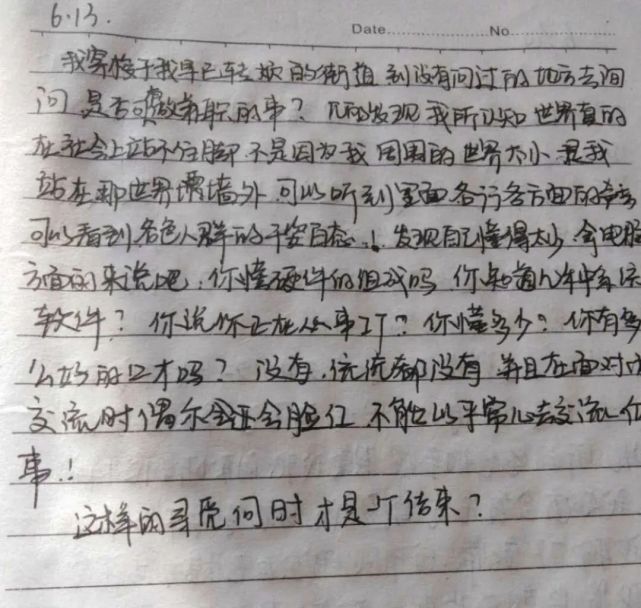 6.13.
Date No.
我穿梭于我早已轻松的街道 到没有问过的地方去询
问 是否可做兼职的事? 发现我所认知世界真的
在社会上站不住脚 不是因为我周围的世界太小 是我
站在那世界墙外 可以听到里面各行各方面的
可以看到各色人群的千姿百态.! 发现自己懂得太少 会电脑
方面的来说吧. 你懂硬件的组成吗 你知道几年中有
软件? 你说你正在从事IT? 你懂多少? 你有多
么好的口才吗? 没有. 统统都没有 并且在面对
交流时偶尔会还会脸红 不能以平常心去交流一件
事.!
这样的寻觅何时才是个结束?